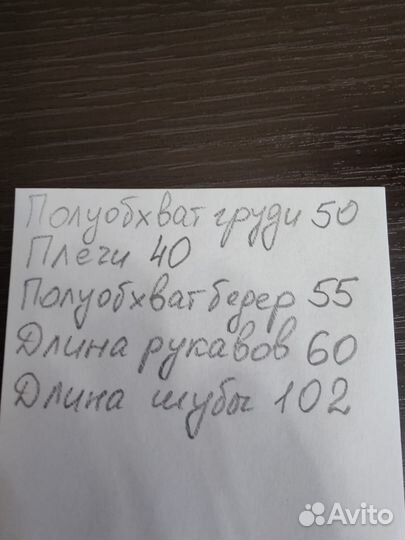 Полуобхват груди 50
Плечи 40
Полуобхват бедер 55
Длина рукавов 60
Длина шубы 102
Avito